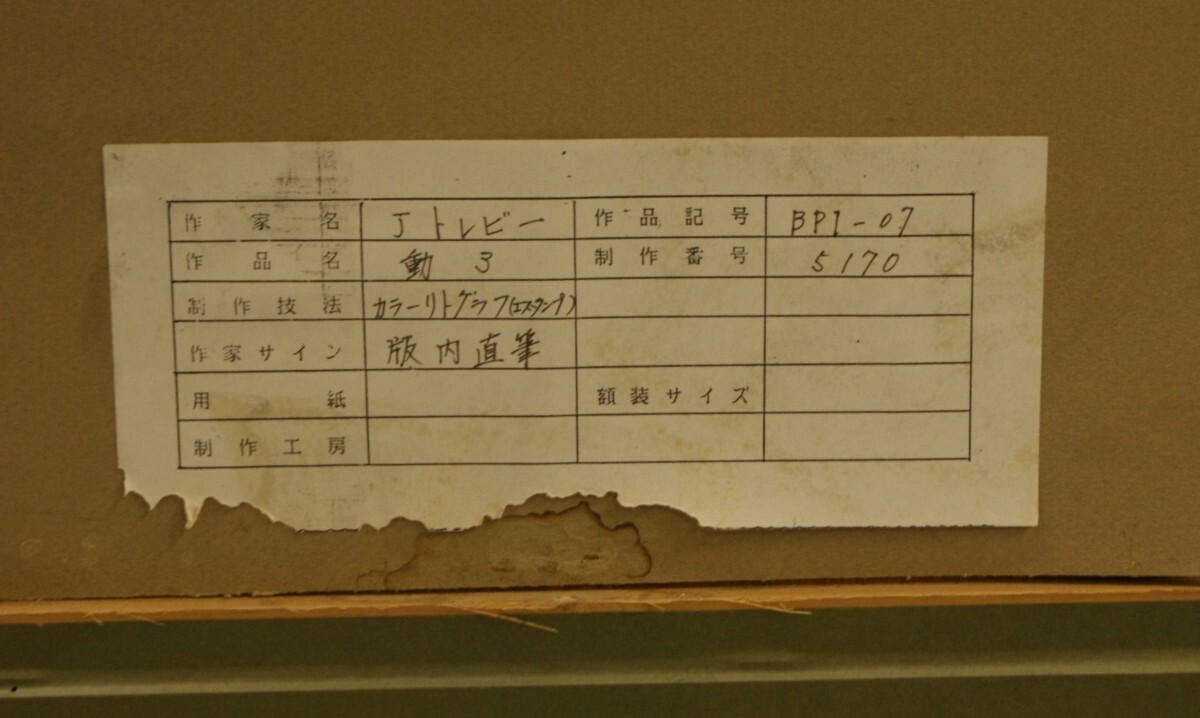 作家名 Jトレビー 作品記号 BP1-07
作品名 動3 制作番号 5170
制作技法 カラーリトグラフ(エスタンプ)
作家サイン 版内直筆
用紙 額装サイズ
制作工房